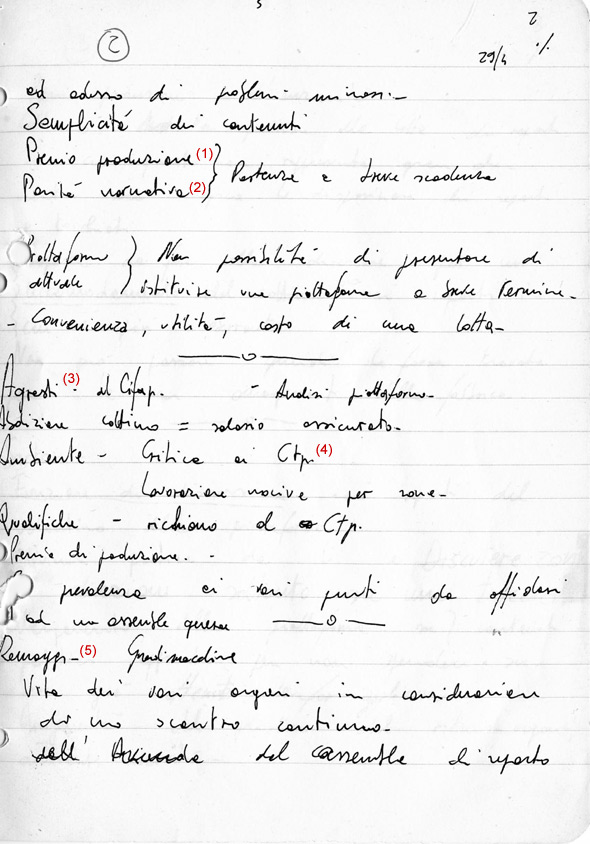 2
2 29/4 ./.
ad adesso di problemi minori.-
Semplicità dei contenuti
Premio produzione (1)
Parità normativa (2) } Partenza a breve scadenza
Piattaforma } Non possibilità di presentare di
attuale } istituire una piattaforma a breve termine.-
- Convenienza, utilità, costo di una lotta-
Agresti (3) - al Cifap. - Analisi piattaforma-
Abolizione cottimo = salario assicurato.-
Ambiente - Critica ai Ctp. (4)
Lavorazione nocive per zone-
Qualifiche - richiamo al Ctp.
Premio di produzione. -
prevalenza ai vari punti da affidarsi
ad una assemblea
(5)
Vita dei vari organi in considerazione
di uno scontro continuo-
del assemblee di reparto